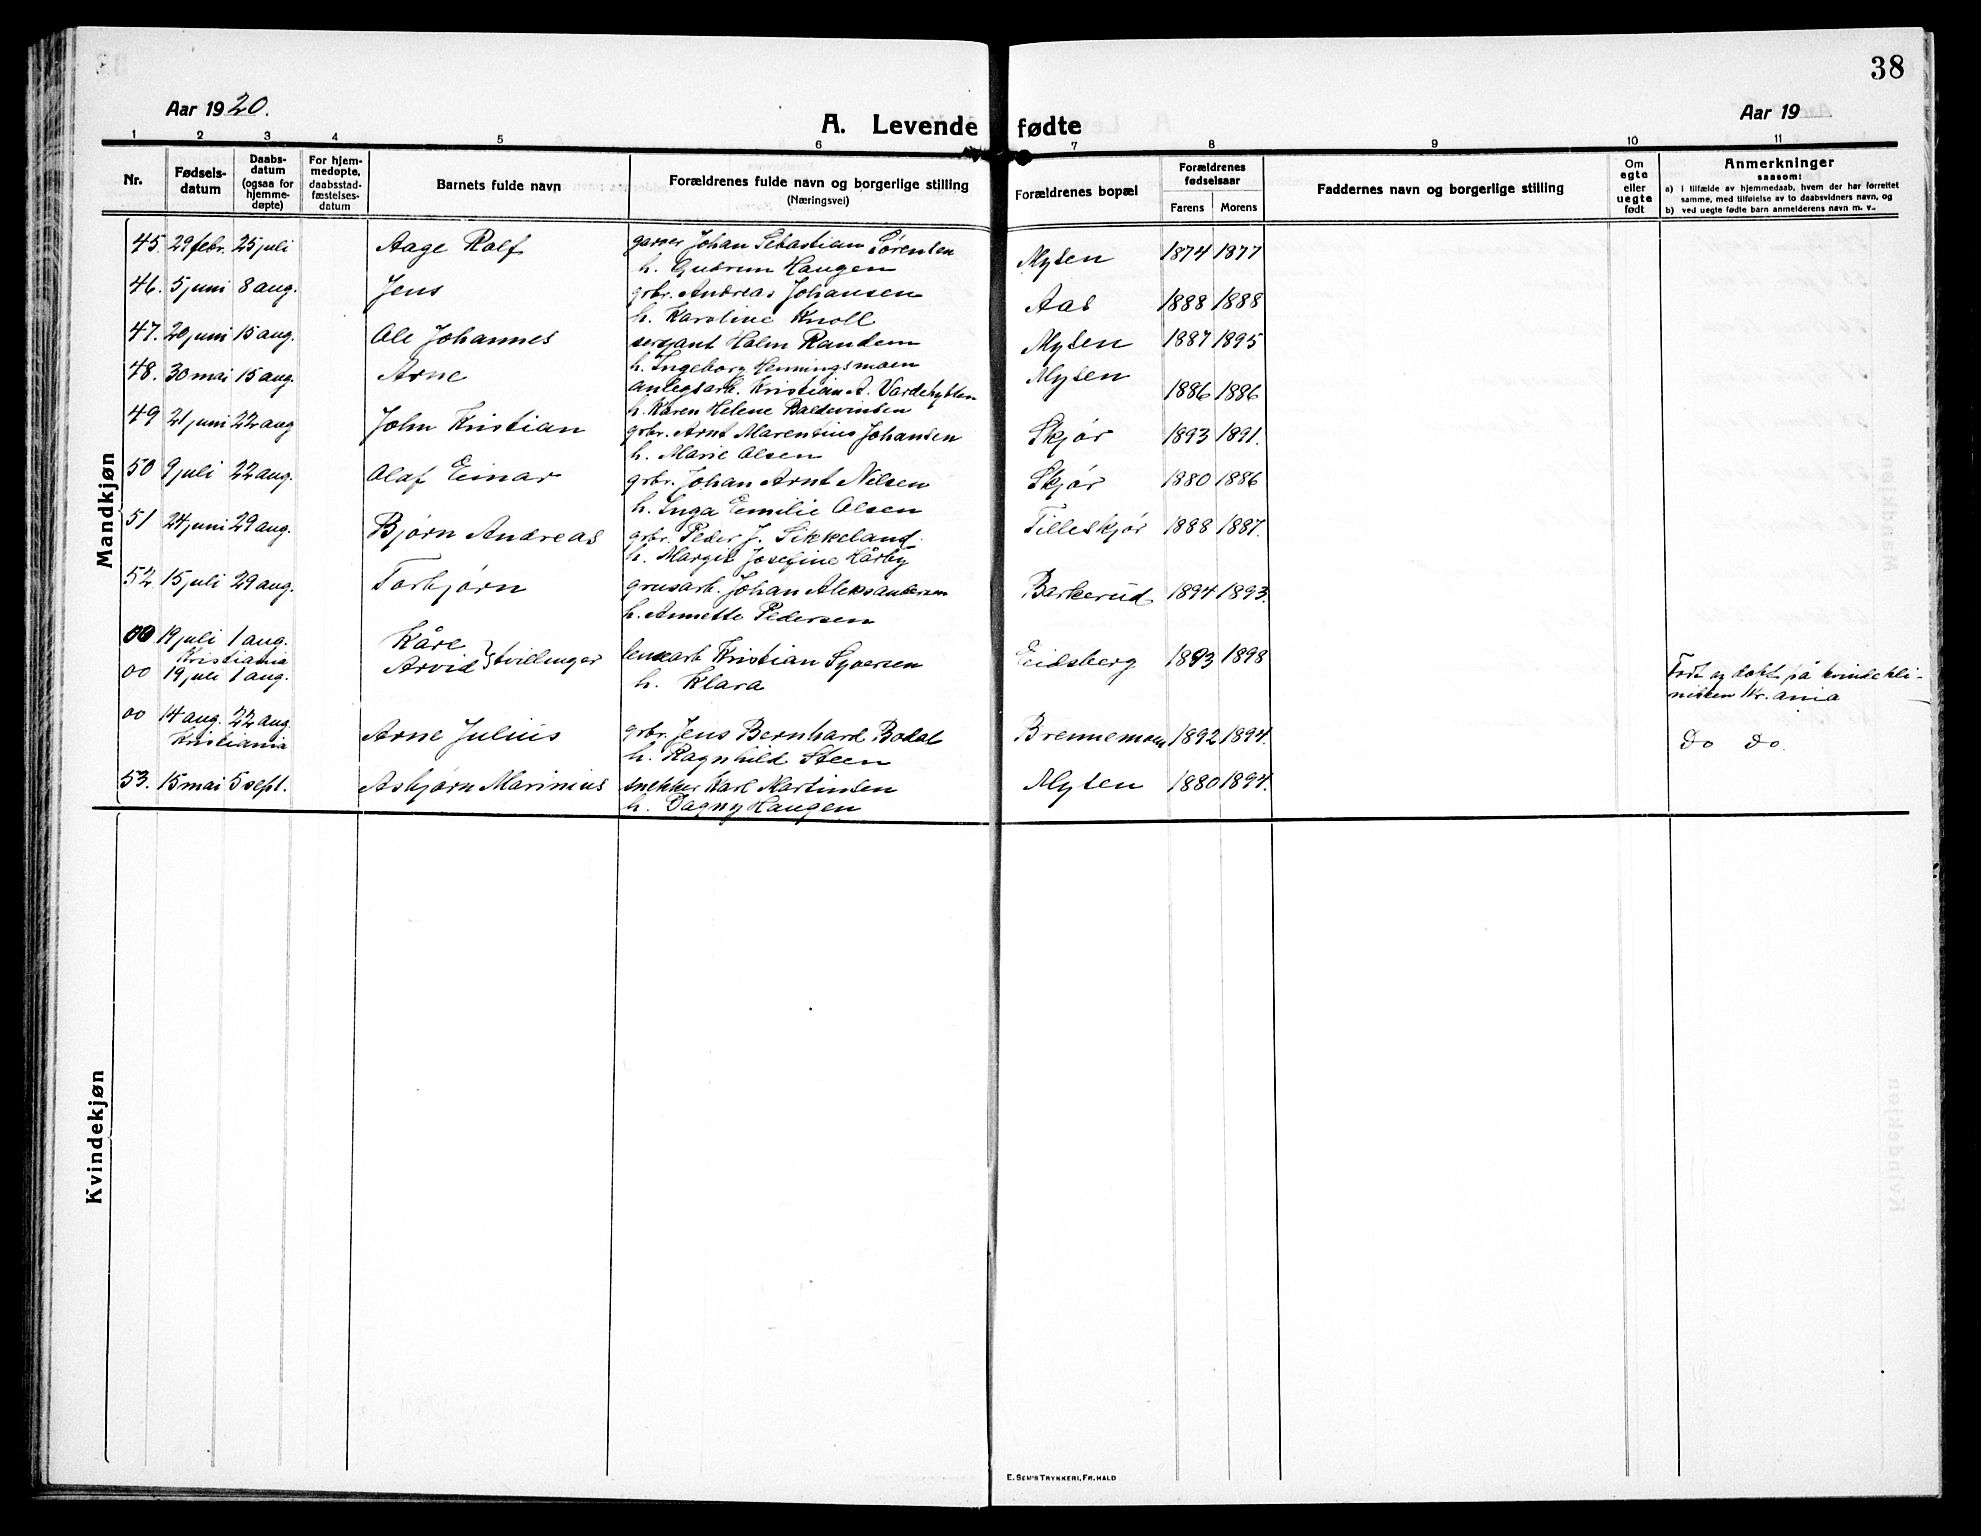 38
Aar 1920.
A. Levende fødte
Aar 19
1 2 3 4 5 6 7 8 9 10 11
Nr.
Fødsels-
datum
Daabs-
datum
(ogsaa for
hjemme-
døpte)
For hjem-
medøpte,
daabsstad-
fæstelses-
datum
Barnets fulde navn
Forældrenes fulde navn og borgerlige stilling
(Næringsvei)
Forældrenes bopæl
Forældrenes
fødselsaar
Farens Morens
Faddernes navn og borgerlige stilling
Om
egte
eller
uegte
født
Anmerkninger
saasom:
a) i tilfælde av hjemmedaab, hvem der har forrettet
samme, med tilføielse av to daabsvidners navn, og
b) ved uegte fødte barn anmelderens navn m. v..
Mandkjøn
45. 29 febr. 25 juli Aage Ralf garver Johan Sebastian Sørensen Mysen 1874 1877
h. Gudrun Haugen
46. 5 juni 8 aug. Jens grbr. Andreas Johansen Aas 1888 1888
h. Karoline Knoll
47. 20 juni 15 aug. Ole Johannes sersjant Halm Randem Mysen 1887 1895
h. Ingeborg Henningsmoen
48. 30 mai 15 aug. Arne anlegsarb. Kristian A. Vardehytten Mysen 1886 1886
h. Karen Helene Baldevinsen
49 21 juni 22 aug John Kristian grbr. Arnt Marentius Johansen Skjør 1893 1891.
h. Marie Olsen
50 9 juli 22 aug. Olaf Einar grbr. Johan Arnt Nilsen Skjør 1880 1886
h. Inga Emilie Olsen
51 24 juni 29 aug. Bjørn Andreas grbr. Peder J. Sikkeland Tilleskjør 1888 1887.
h. Margit Josefine Kårby
52 15 juli 29 aug. Torbjørn grusarb. Johan Aleksandersen Barkerud 1894 1893.
h. Annette Pedersen
00 19 juli 1 aug. Kåre
Kristiania
00 19 juli 1 aug. Arvid } tvillinger Kristian Syversen Eidsberg 1893 1898 Født og døbt på kvindekli-
h. Klara nikken Kr.ania
00 14 aug. 22 aug. Arne Julius grbr. Jens Bernhard Bodal Brennemoen 1892 1894. Do Do.
Kristiania h. Ragnhild Steen
53. 15 mai 5 sept. Asbjørn Marinius snekker Karl Martinsen Mysen 1880 1894.
h. Dagny Haugen
Kvindekjøn
E. Sem's Trykkeri, Fr.hald